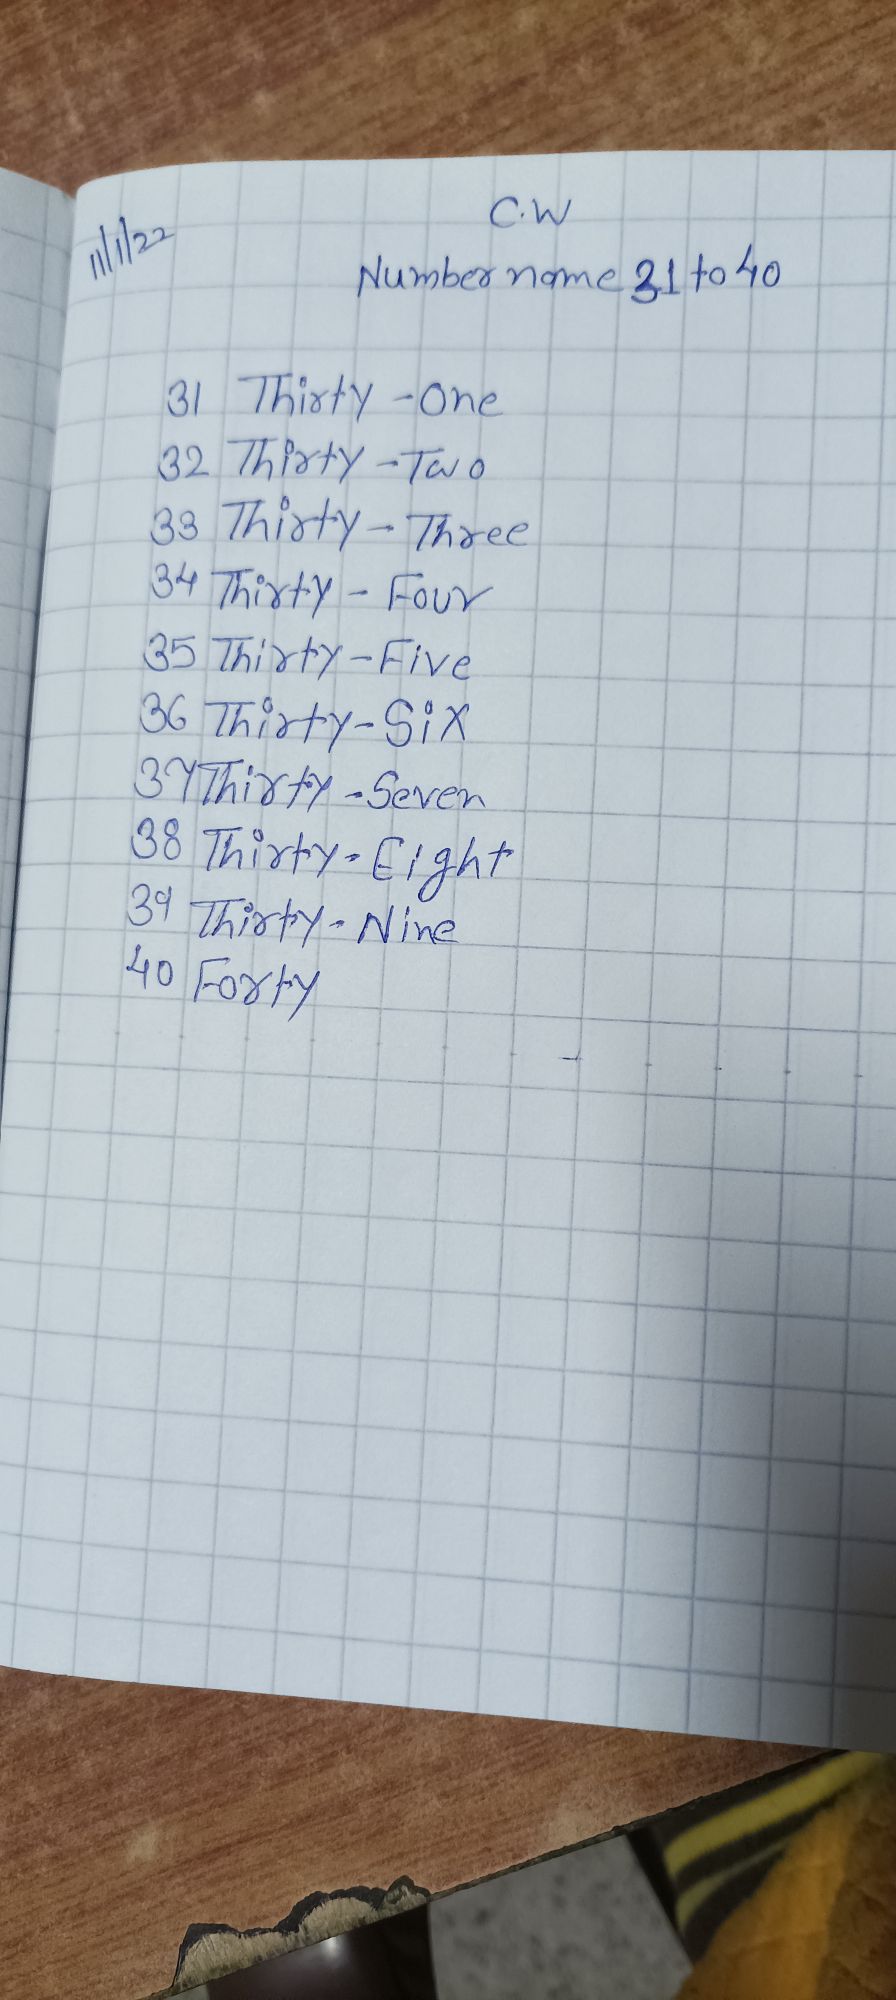 C.W
11/1/22
Number name 31 to 40
31 Thirty -One
32 Thirty -Two
33 Thirty - Three
34 Thirty - Four
35 Thirty - Five
36 Thirty - Six
37 Thirty - Seven
38 Thirty - Eight
39 Thirty - Nine
40 Forty